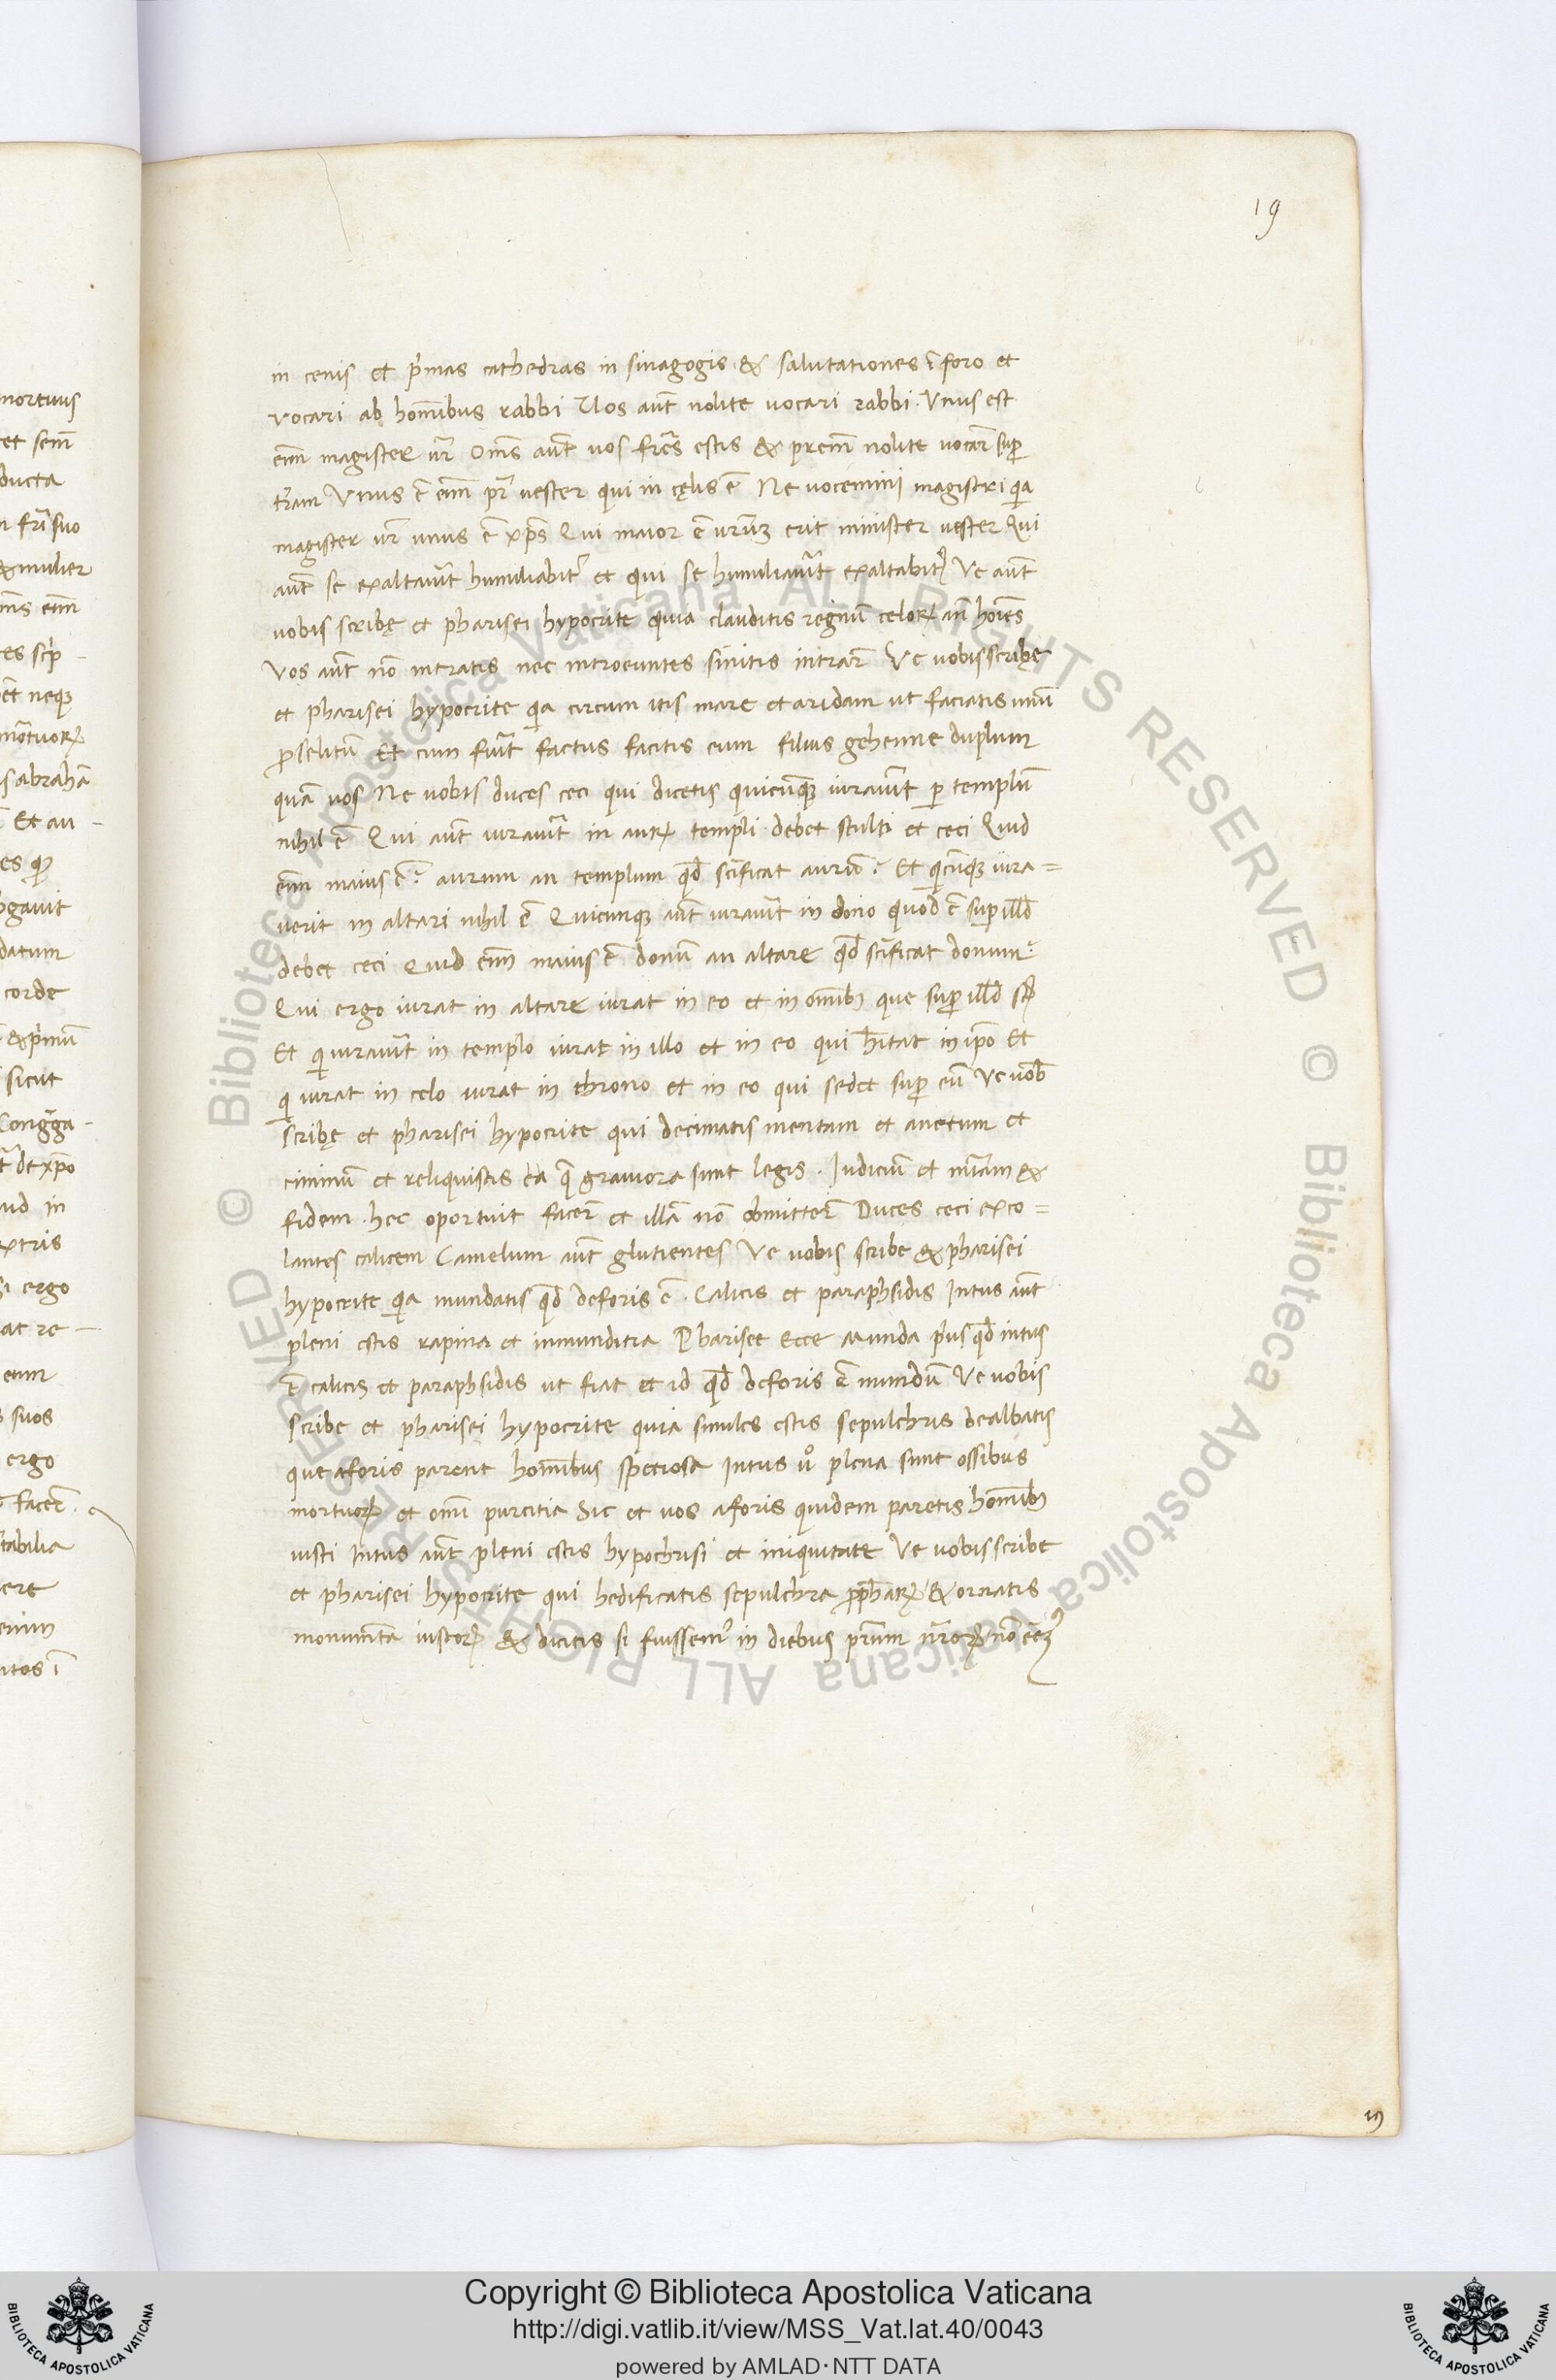 19
in cenis et p̃mas cathedras in sinagogis & salutationes ĩ foro et
vocari ab hom̃ibus rabbi Uos aũt nolite uocari rabbi. Vnus est
em̃ magister ur̃ Om̃s aũt uos fr̃es estis & p̃rem̃ nolite vocar̃ suꝑ
tr̃am Vnus ẽ em̃ pr̃ uester qui in cęlis ẽ Ne uocemini magistri q̃a
magister ur̃ unus ẽ xp̃s Qui maior ẽ ur̃uꝫ erit minister uester Qui
aũt se exaltauĩt humiliabit᷑ et qui se humiliauĩt exaltabit᷑ Ve aũt
uobis scribę et pharisei hypocrite quia clauditis regnũ celoꝝ añ hoĩes
Vos aũt nõ intratis nec introeuntes sinitis intrar̃ Ve uobis scribę
et pharisei hypocrite q̃a circum itis mare et aridam ut faciatis unũ
ꝓselitũ Et cum fuĩt factus facitis eum filius gehenne duplum
quã uos Ne uobis duces ceci qui dicetis quicũqꝫ iurauĩt ꝑ templũ
nihil ẽ Qui aũt iurauĩt in auꝝ templi debet stulti et ceci Quid
em̃ maius ẽ? aurum an templum qd̃ sc̃ificat aurũ? Et q̃cũqꝫ iura=
uerit in altari nihil ẽ Quicunqꝫ aũt iurauĩt in dono quod ẽ suꝑ ill̃d
debet ceci Quid em̃ maius ẽ donũ an altare qd̃ sc̃ificat donum?
Qui ergo iurat in altare iurat in eo et in om̃ibꝫ que suꝑ ill̃d st̃
Et q̃ iurauĩt in templo iurat in illo et in eo qui h̃itat in ip̃o Et
q̃ iurat in celo iurat in throno et in eo qui sedet suꝑ eũ Ve uob̃
scribę et pharisei hypocrite qui decimatis mentam et anetum et
ciminũ et reliquistis ea q̃ grauiora sunt legis. Iudiciũ et mĩam &
fidem. hec oportuit facer̃ et illã nõ obmitter̃ Duces ceci exco=
lantes culicem Camelum aũt glutientes Ve uobis scribe & pharisei
hypocrite q̃a mundatis qd̃ deforis ẽ. Calicis et paraphsidis Intus aũt
pleni estis rapina et inmunditia Pharisee Ecce munda p̃us qd̃ intus
ẽ calicis et paraphsidis ut fiat et id qd̃ deforis ẽ mundũ Ve uobis
scribe et pharisei hypocrite quia similes estis sepulchris dealbatis
que aforis parent hom̃ibus speciosa Intus uº plena sunt ossibus
mortuoꝝ et om̃i purcitia Sic et uos aforis quidem paretis hom̃ibꝫ
iusti Intus aũt pleni estis hypochrisi et iniquitate Ve uobis scribe
et pharisei hypocrite qui hedificatis sepulchra ꝓphaꝝ & ornatis
monum̃ta iustoꝝ & dicitis si fuissem᷑ in diebus pr̃um nr̃oꝝ nõ
19
Copyright © Biblioteca Apostolica Vaticana
http://digi.vatlib.it/view/MSS_Vat.lat.40/0043
powered by AMLAD·NTT DATA
© Biblioteca Apostolica Vaticana ALL RIGHTS RESERVED © Biblioteca Apostolica Vaticana ALL RIGHTS RESERVED
BIBLIOTECA APOSTOLICA VATICANA
BIBLIOTECA APOSTOLICA VATICANA